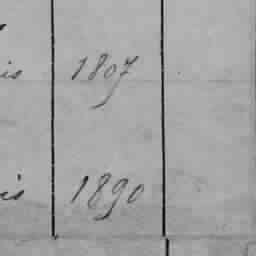 is 1807
is 1890